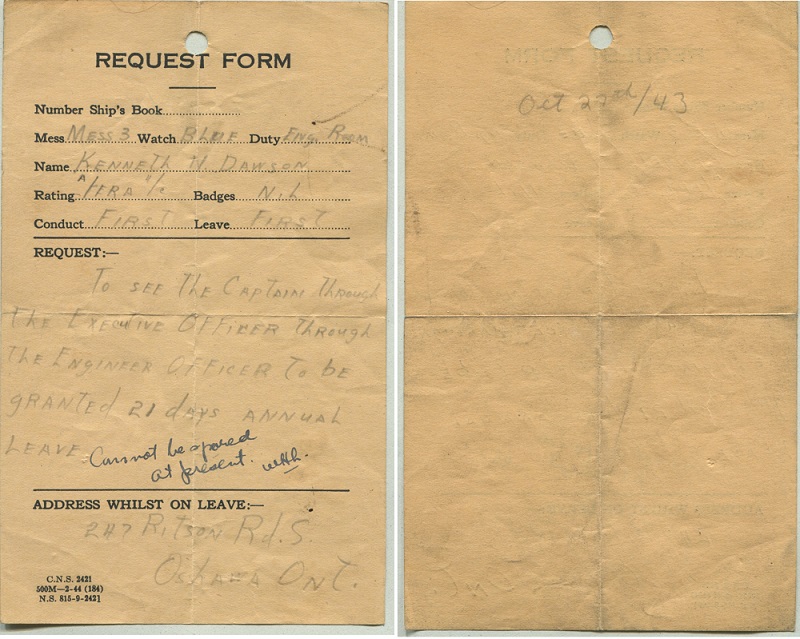 REQUEST FORM
Number Ship's Book
Mess MESS 3 Watch BLUE Duty ENG. ROOM
Name KENNETH N DAWSON
Rating A/ERA 4/c Badges NIL
Conduct FIRST Leave FIRST
REQUEST:—
TO SEE THE CAPTAIN THROUGH
THE EXECUTIVE OFFICER THROUGH
THE ENGINEER OFFICER TO BE
GRANTED 21 dAYS ANNUAL
LEAVE. Cannot be spared
at present.
ADDRESS WHILST ON LEAVE:—
247 RITSON Rd. S.
OSHAWA ONT.
C.N.S. 2421
500M—2-44 (184)
N.S. 815-9-2421
Oct 27nd/43